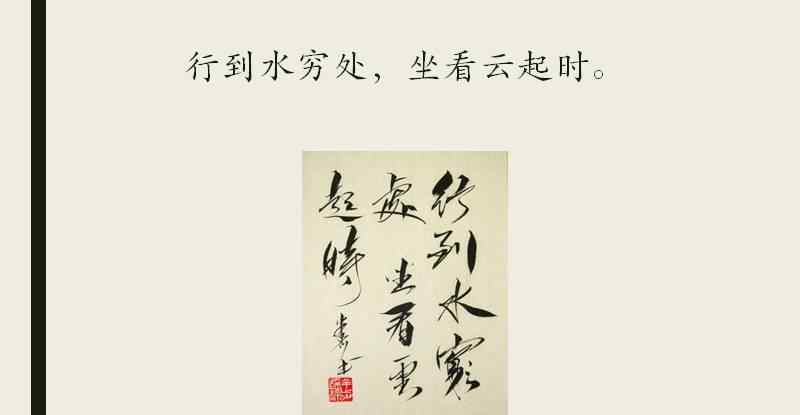 行到水穷处，坐看云起时。
行到水窮
處 坐看雲
起時